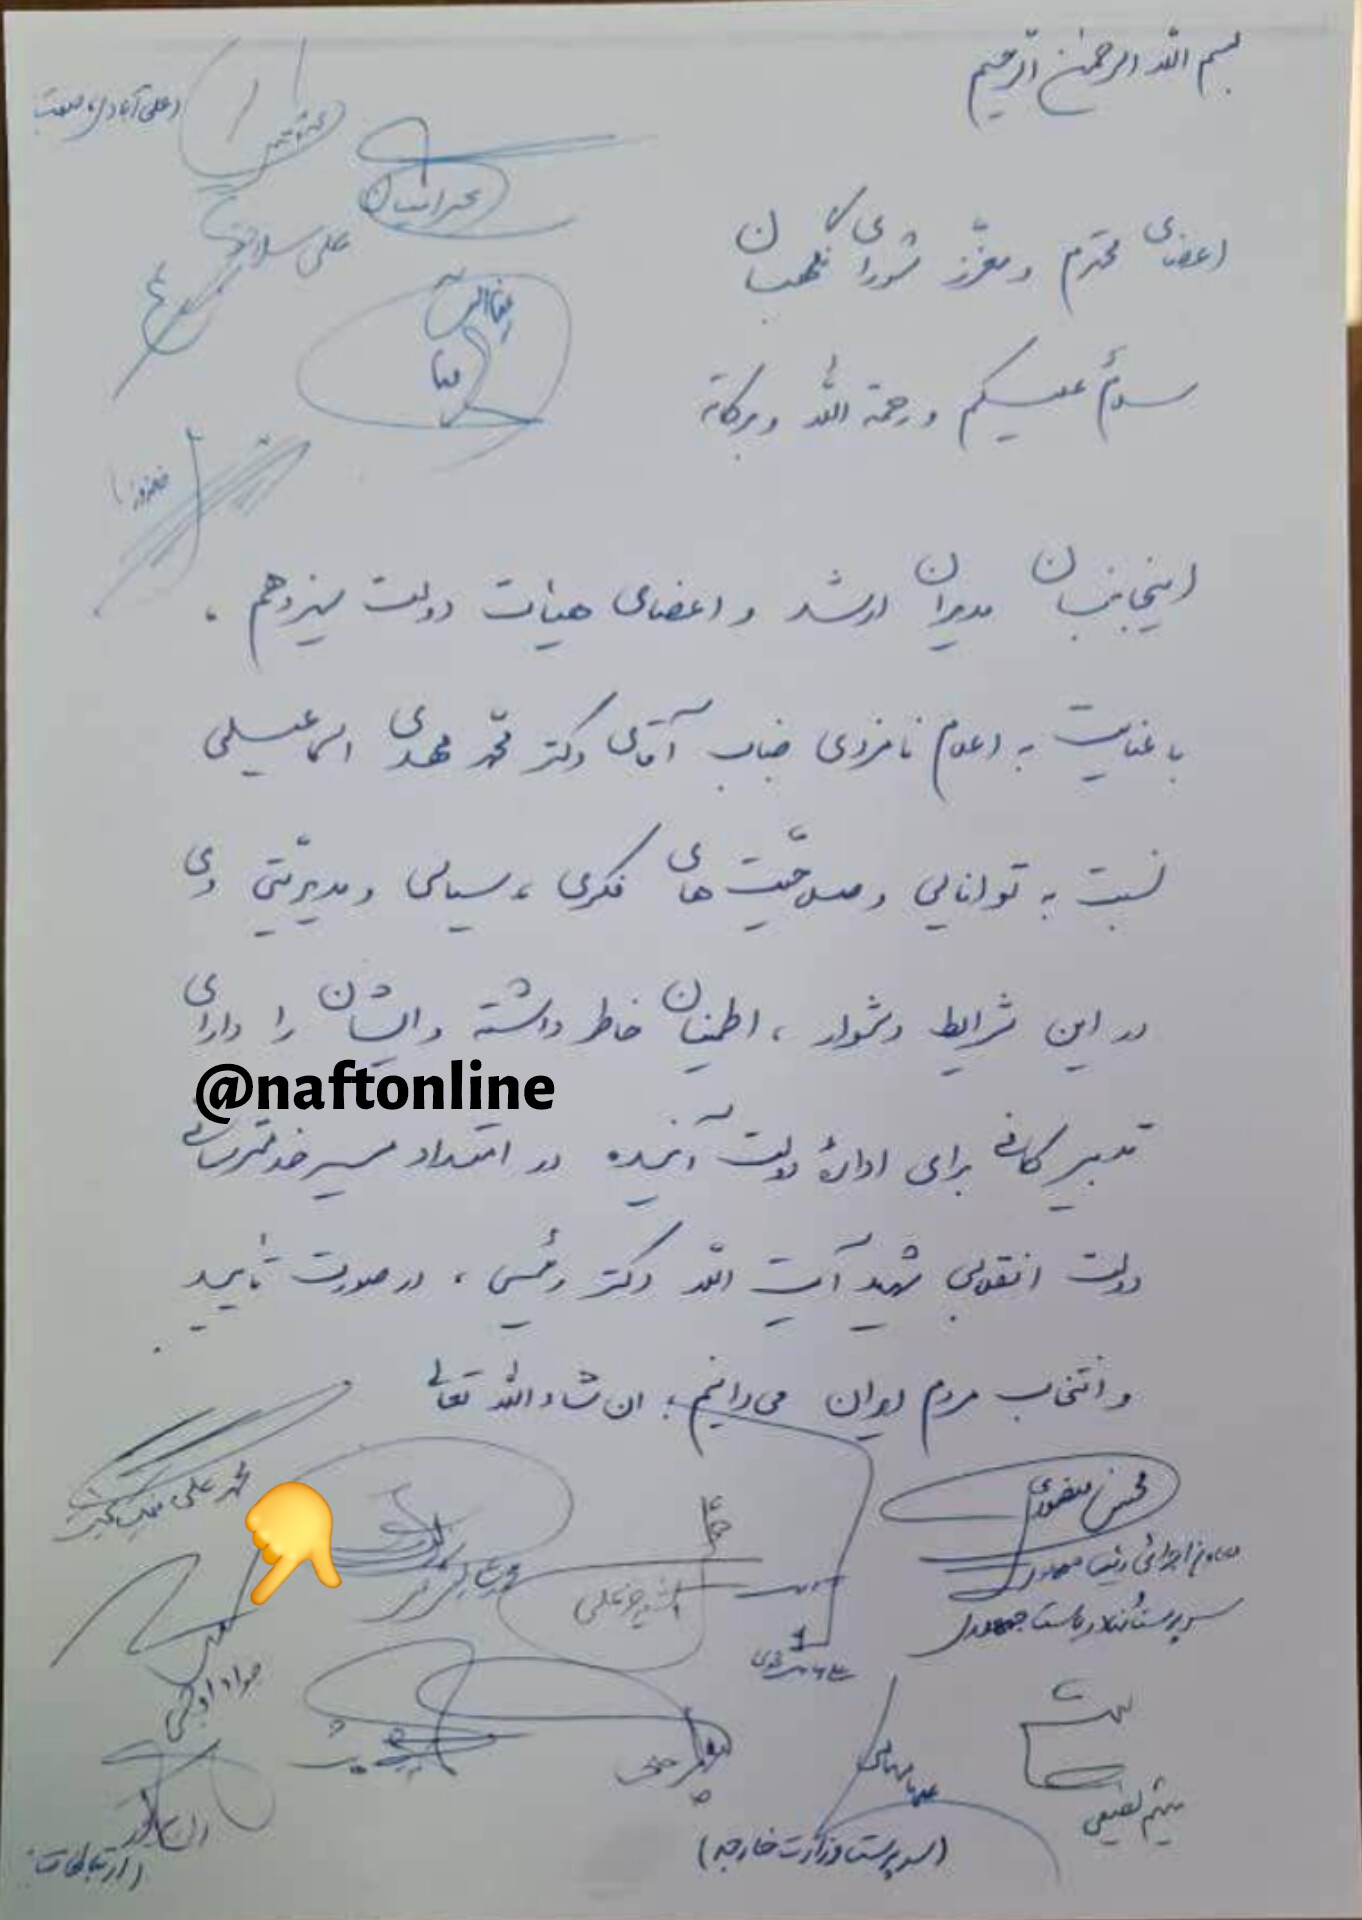 بسم الله الرحمن الرحیم
اعضای محترم و معزّز شورای نگهبان
سلامٌ علیکم و رحمة الله و برکاته
اینجانبان مدیران ارشد و اعضای هیئات دولت سیزدهم،
با عنایت به اعلام نامزدی جناب آقای دکتر محمّد مهدی اسماعیلی
نسبت به توانایی و صلاحیّت های فکری، سیاسی و مدیریّتی وی
در این شرایط دشوار، اطمینان خاطر داشته و ایشان را دارای
@naftonline
تدبیر کافی برای ادارهٔ دولت آینده در امتداد مسیر خدمترسانی
دولت انقلابی شهید آیت الله دکتر رئیسی، در صورت تأیید
و انتخاب مردم ایران می‌دانیم، ان شاء الله تعالی
(علی آبادی، صمت
محرابیان
علی سلاجقه
محسن منصوری
معاون اجرائی رئیس جمهور
سرپرست نهاد ریاست جمهوری
جواد اوجی
میثم لطیفی
(سرپرست وزارت خارجه)
(ارتباطات)